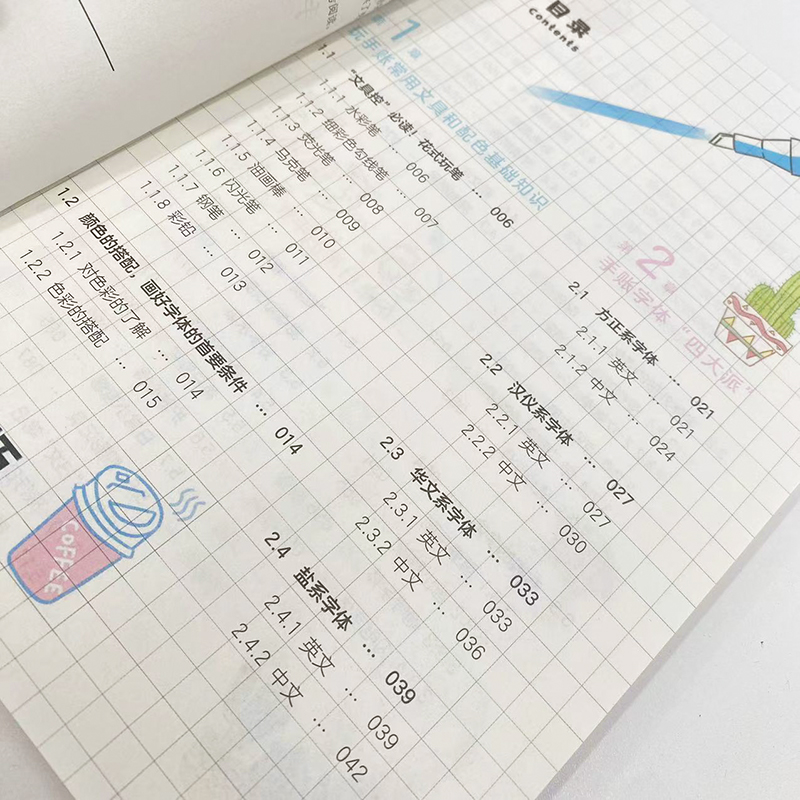 目录
Contents
第1章
玩手账常用文具和配色基础知识
1.1 “文具控”必读！花式玩笔 … 006
1.1.1 水彩笔 … 006
1.1.2 细彩色勾线笔 … 007
1.1.3 荧光笔 … 008
1.1.4 马克笔 … 009
1.1.5 油画棒 … 010
1.1.6 闪光笔 … 011
1.1.7 钢笔 … 012
1.1.8 彩铅 … 013
1.2 颜色的搭配，画好字体的首要条件 … 014
1.2.1 对色彩的了解 … 014
1.2.2 色彩的搭配 … 015
第2章
手账字体“四大派”
2.1 方正系字体 … 021
2.1.1 英文 … 021
2.1.2 中文 … 024
2.2 汉仪系字体 … 027
2.2.1 英文 … 027
2.2.2 中文 … 030
2.3 华文系字体 … 033
2.3.1 英文 … 033
2.3.2 中文 … 036
2.4 盐系字体 … 039
2.4.1 英文 … 039
2.4.2 中文 … 042
COFFEE